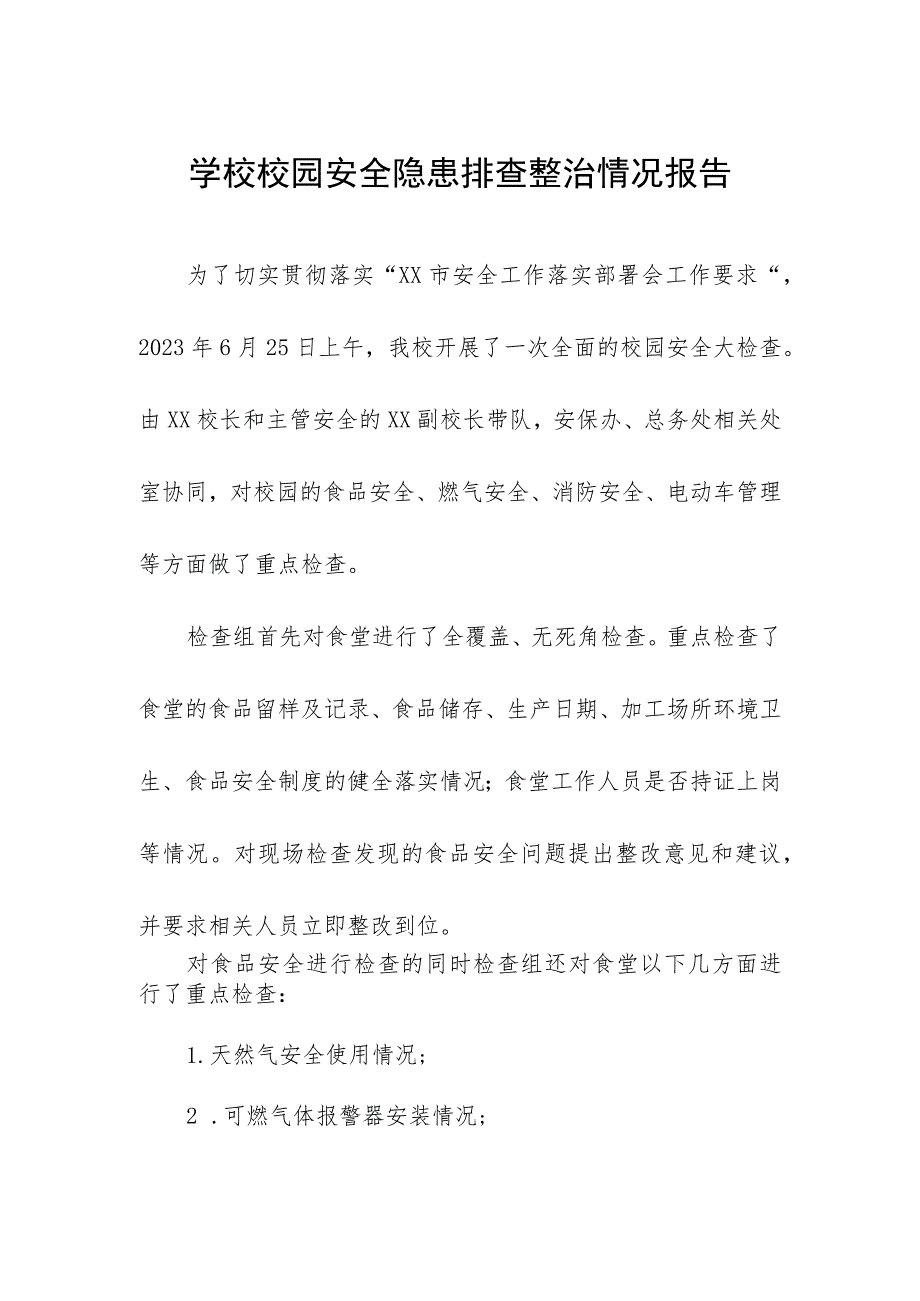 学校校园安全隐患排查整治情况报告
为了切实贯彻落实“XX市安全工作落实部署会工作要求“，
2023年6月25日上午，我校开展了一次全面的校园安全大检查。
由XX校长和主管安全的XX副校长带队，安保办、总务处相关处
室协同，对校园的食品安全、燃气安全、消防安全、电动车管理
等方面做了重点检查。
检查组首先对食堂进行了全覆盖、无死角检查。重点检查了
食堂的食品留样及记录、食品储存、生产日期、加工场所环境卫
生、食品安全制度的健全落实情况；食堂工作人员是否持证上岗
等情况。对现场检查发现的食品安全问题提出整改意见和建议，
并要求相关人员立即整改到位。
对食品安全进行检查的同时检查组还对食堂以下几方面进
行了重点检查：
1.天然气安全使用情况；
2 .可燃气体报警器安装情况；